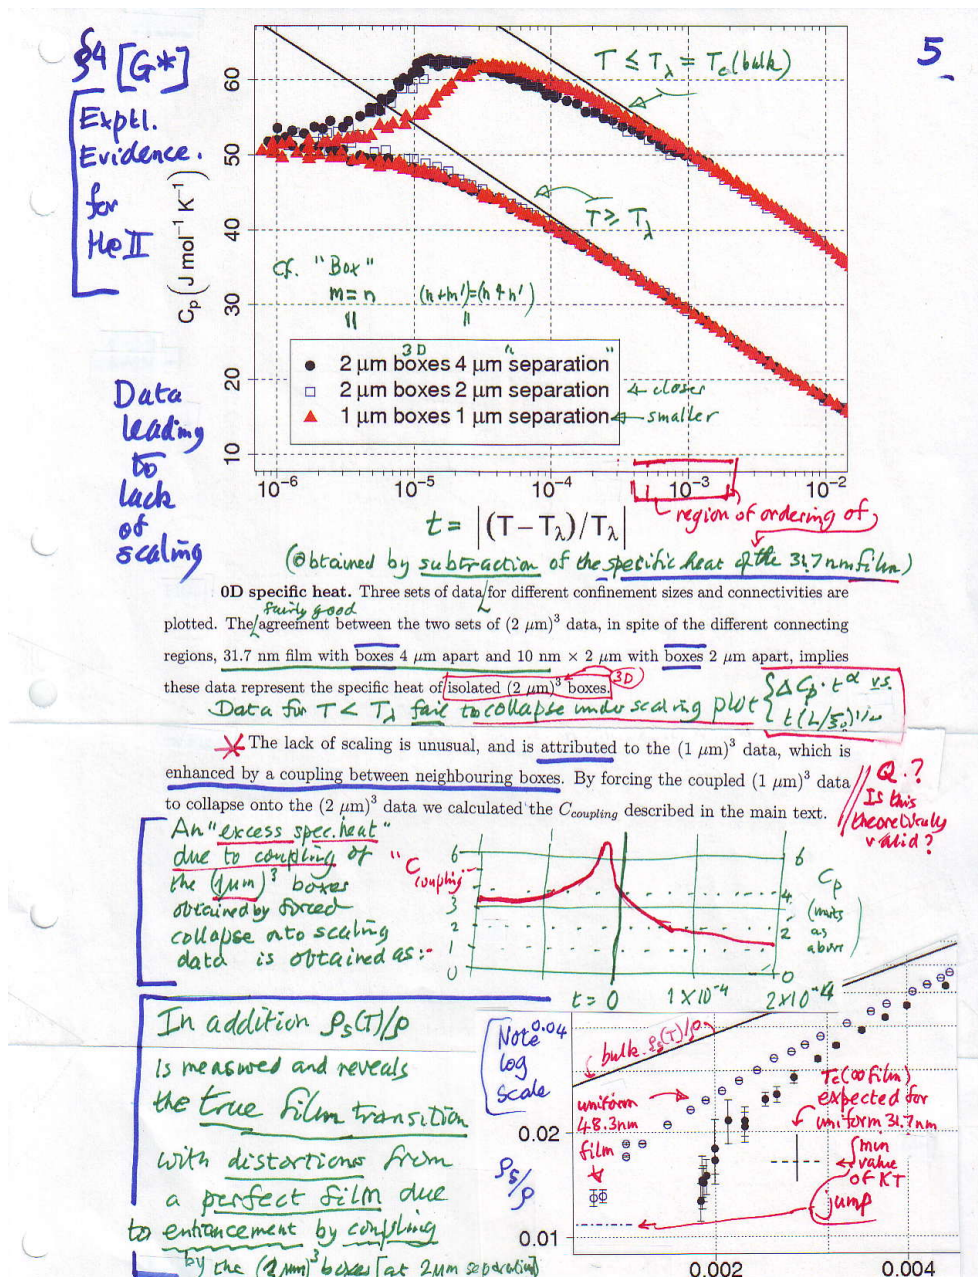 §4 [G*]
5
Exptl.
Evidence.
for
He II
T ≤ Tλ = Tc(bulk)
T ≥ Tλ
Cp (J mol⁻¹ K⁻¹)
60
50
40
30
20
10
cf. "Box"
m = n (n+m')=(n+n')
3D
2 μm boxes 4 μm separation"
2 μm boxes 2 μm separation
← closer
1 μm boxes 1 μm separation
← smaller
10⁻⁶ 10⁻⁵ 10⁻⁴ 10⁻³ 10⁻²
t = |(T−Tλ)/Tλ|
region of ordering of
Data
leading
to
lack
of
scaling
(Obtained by subtraction of the specific heat of the 31.7 nm film)
0D specific heat. Three sets of data for different confinement sizes and connectivities are
fairly good
plotted. The agreement between the two sets of (2 μm)³ data, in spite of the different connecting
regions, 31.7 nm film with boxes 4 μm apart and 10 nm × 2 μm with boxes 2 μm apart, implies
these data represent the specific heat of isolated (2 μm)³ boxes. 3D
Data for T < Tλ fail to collapse under scaling plot { ΔCp·t^α vs.
t(L/ξ₀)^1/ν
The lack of scaling is unusual, and is attributed to the (1 μm)³ data, which is
enhanced by a coupling between neighbouring boxes. By forcing the coupled (1 μm)³ data
to collapse onto the (2 μm)³ data we calculated the C_coupling described in the main text.
Q.?
Is this
theoretically
valid?
An "excess spec. heat"
due to coupling of
the (1μm)³ boxes
obtained by forced
collapse onto scaling
data is obtained as:-
"C coupling"
6
3
2
1
0
6
4
2
0
Cp
(units
as
above)
t = 0 1×10⁻⁴ 2×10⁻⁴
In addition ρs(T)/ρ
is measured and reveals
the true film transition
with distortions from
a perfect film due
to enhancement by coupling
by the (2μm)³ boxes [at 2μm separation]
Note
log
Scale
0.04
0.02
0.01
ρs/ρ
bulk ρs(T)/ρ
uniform
48.3nm
film
Tc(∞ film)
expected for
uniform 31.7nm
min
value
of KT
jump
0.002 0.004